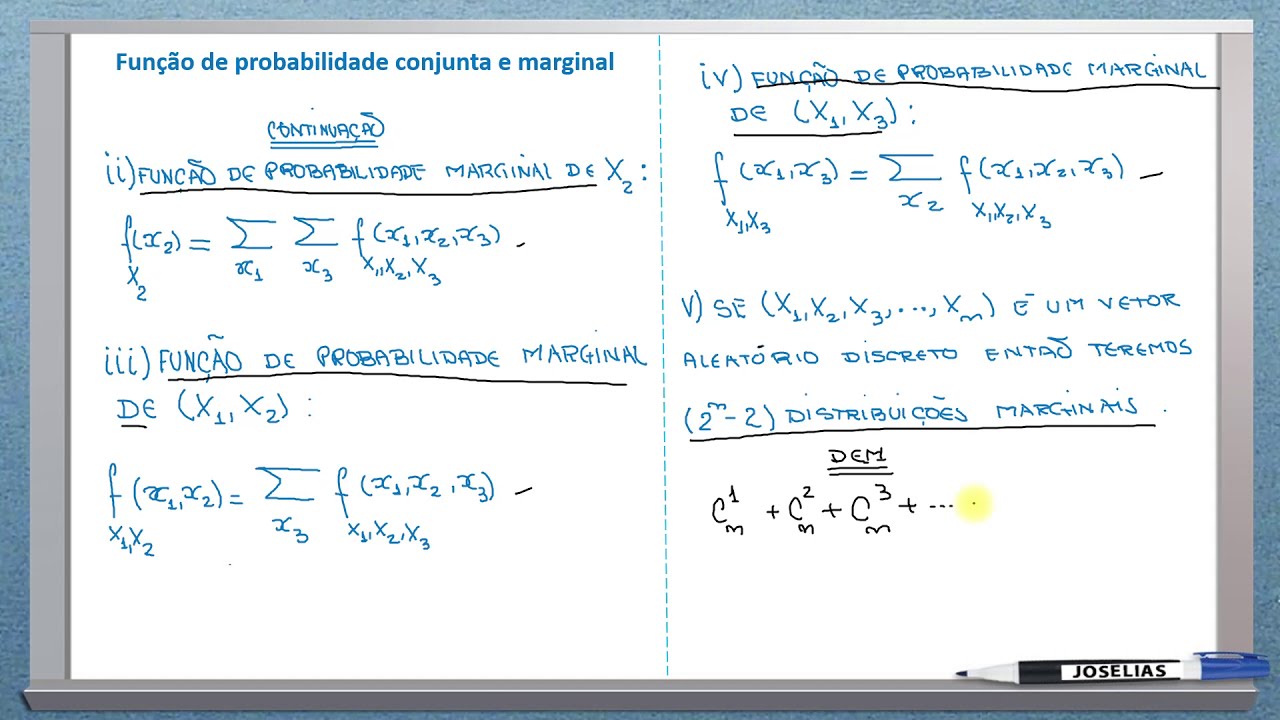 Função de probabilidade conjunta e marginal
CONTINUAÇÃO
ii) FUNÇÃO DE PROBABILIDADE MARGINAL DE X₂ :
f_{X₂}(x₂) = Σ_{x₁} Σ_{x₃} f_{X₁,X₂,X₃}(x₁,x₂,x₃)
iii) FUNÇÃO DE PROBABILIDADE MARGINAL
DE (X₁, X₂) :
f_{X₁,X₂}(x₁,x₂) = Σ_{x₃} f_{X₁,X₂,X₃}(x₁,x₂,x₃)
iv) FUNÇÃO DE PROBABILIDADE MARGINAL
DE (X₁, X₃) :
f_{X₁,X₃}(x₁,x₃) = Σ_{x₂} f_{X₁,X₂,X₃}(x₁,x₂,x₃)
V) SE (X₁,X₂,X₃,...,Xₙ) É UM VETOR
ALEATÓRIO DISCRETO ENTÃO TEREMOS
(2ⁿ-2) DISTRIBUIÇÕES MARGINAIS.
DEM
C¹ₙ + C²ₙ + C³ₙ + ...
JOSELIAS